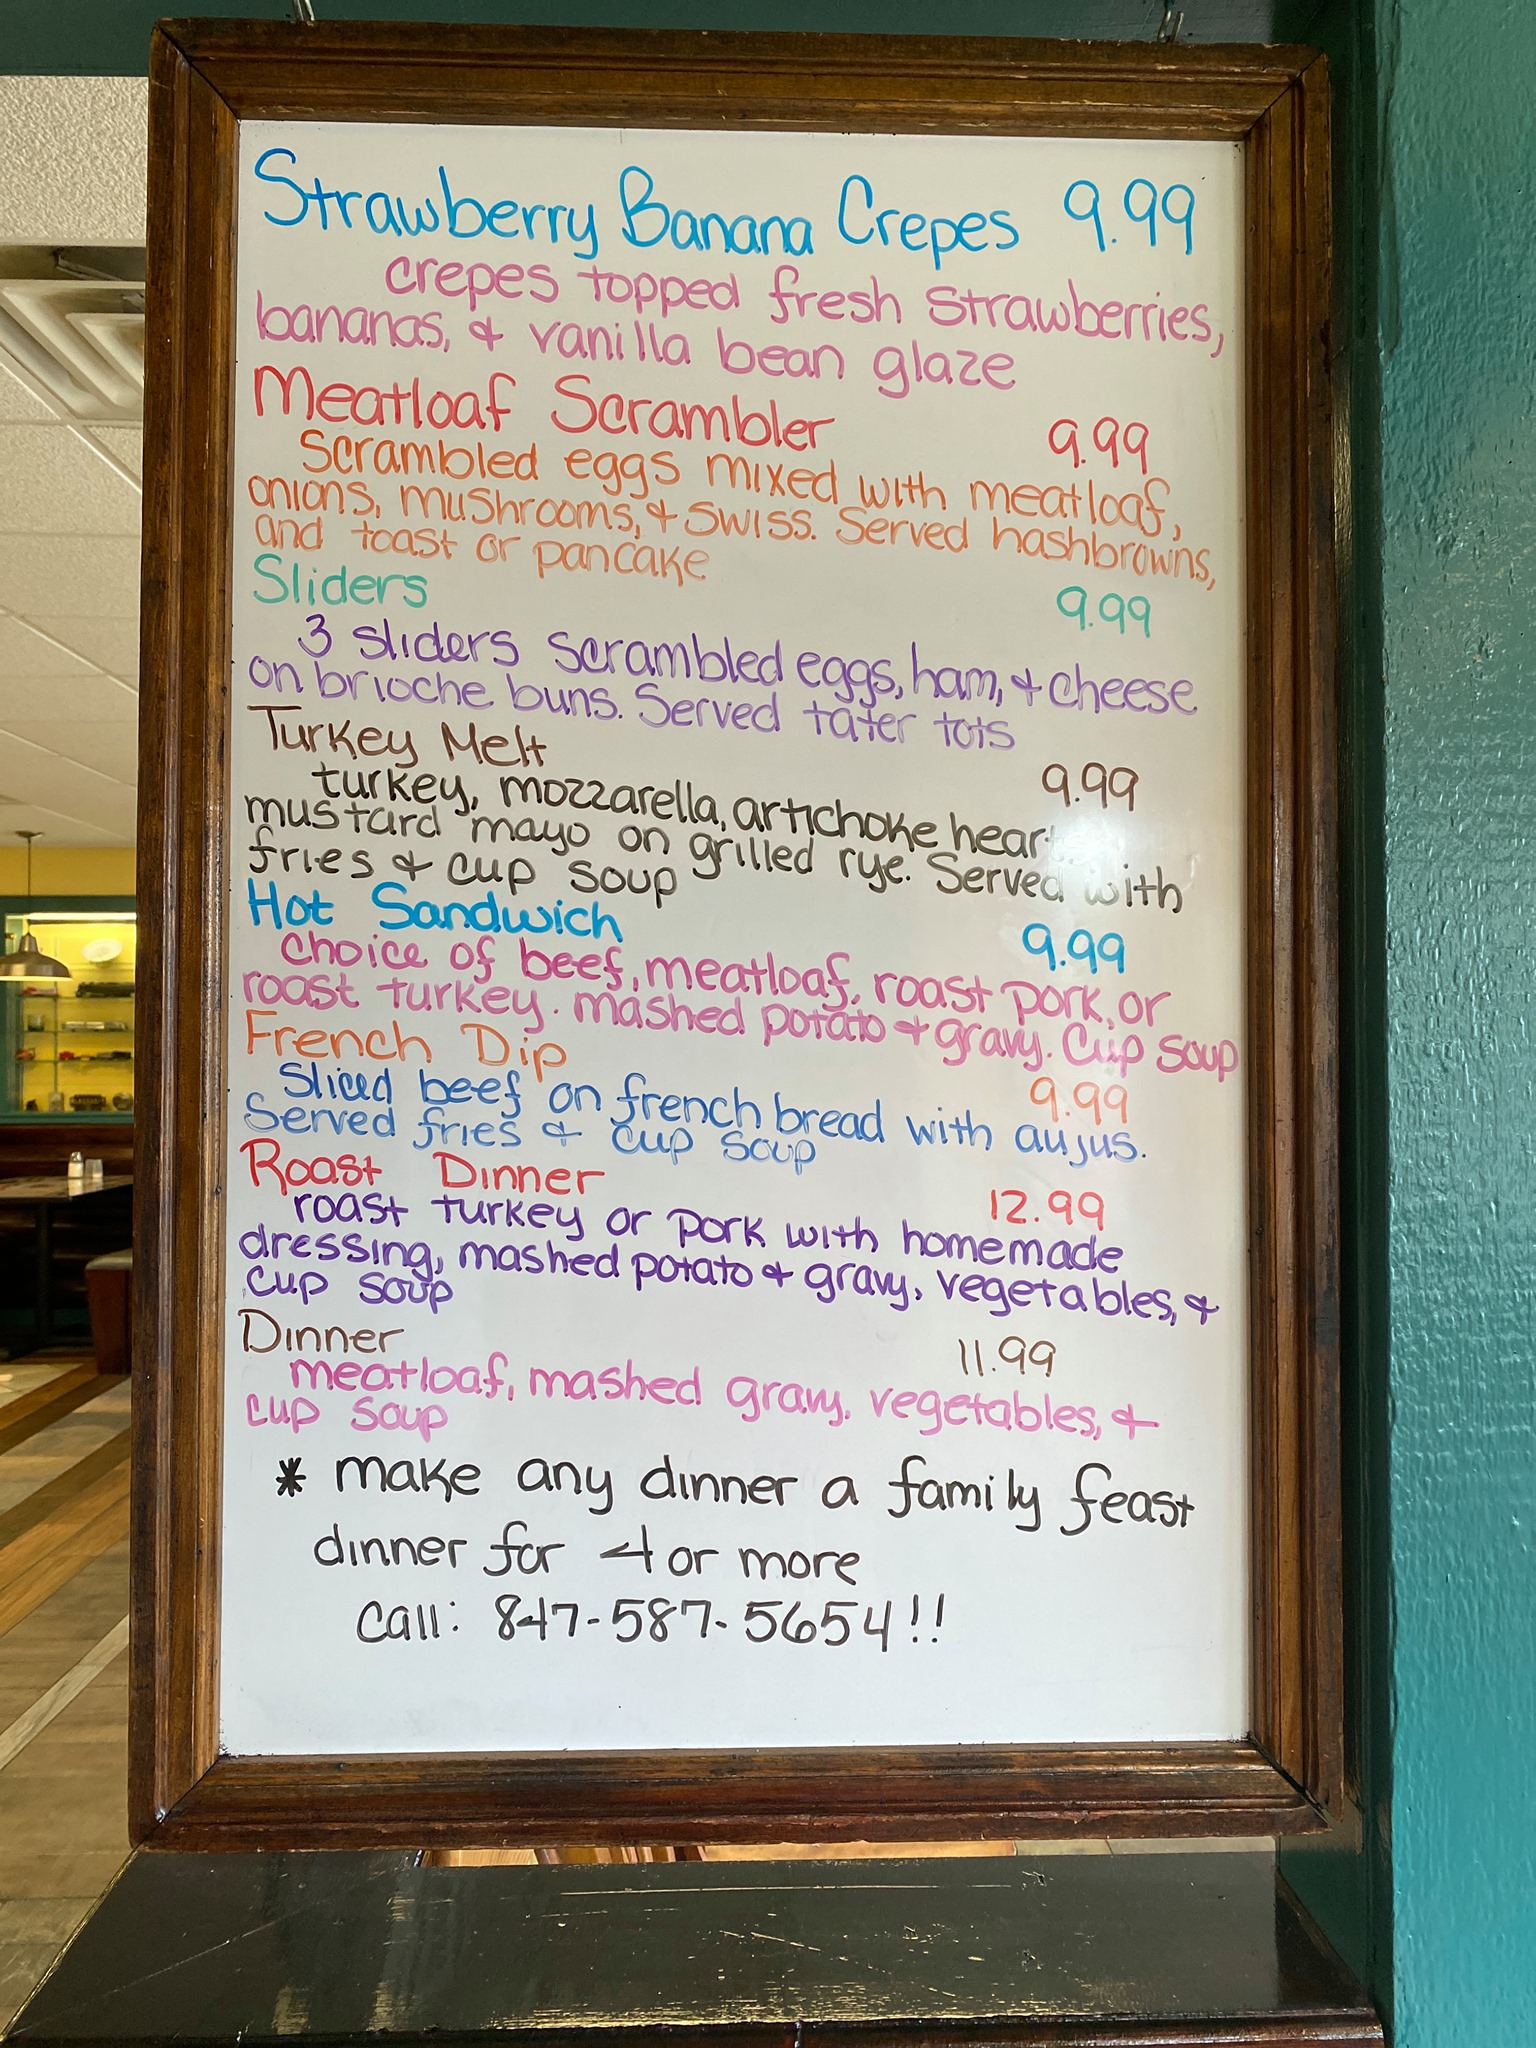 Strawberry Banana Crepes 9.99
crepes topped fresh strawberries,
bananas, & vanilla bean glaze
Meatloaf Scrambler 9.99
Scrambled eggs mixed with meatloaf,
onions, mushrooms, & swiss. Served hashbrowns,
and toast or pancake
Sliders 9.99
3 sliders scrambled eggs, ham, & cheese
on brioche buns. Served tater tots
Turkey Melt 9.99
turkey, mozzarella, artichoke heart
mustard mayo on grilled rye. Served with
fries & cup soup
Hot Sandwich 9.99
choice of beef, meatloaf, roast pork, or
roast turkey. mashed potato & gravy. Cup soup
French Dip 9.99
Sliced beef on french bread with aujus.
Served fries & cup soup
Roast Dinner 12.99
roast turkey or pork with homemade
dressing, mashed potato & gravy, vegetables, &
cup soup
Dinner 11.99
meatloaf, mashed gravy, vegetables, &
cup soup
* make any dinner a family feast
dinner for 4 or more
Call: 847-587-5654!!